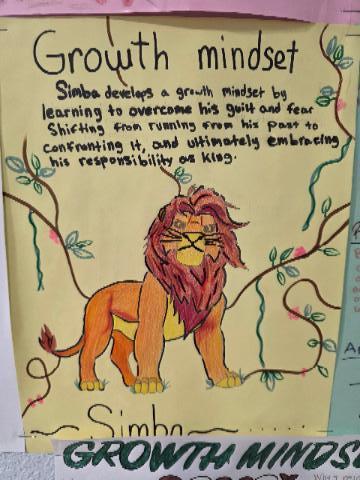 Growth mindset
Simba develops a growth mindset by
learning to overcome his guilt and fear
Shifting from running from his past to
confronting it, and ultimately embracing
his responsibility as king.
Simba
GROWTH MINDS